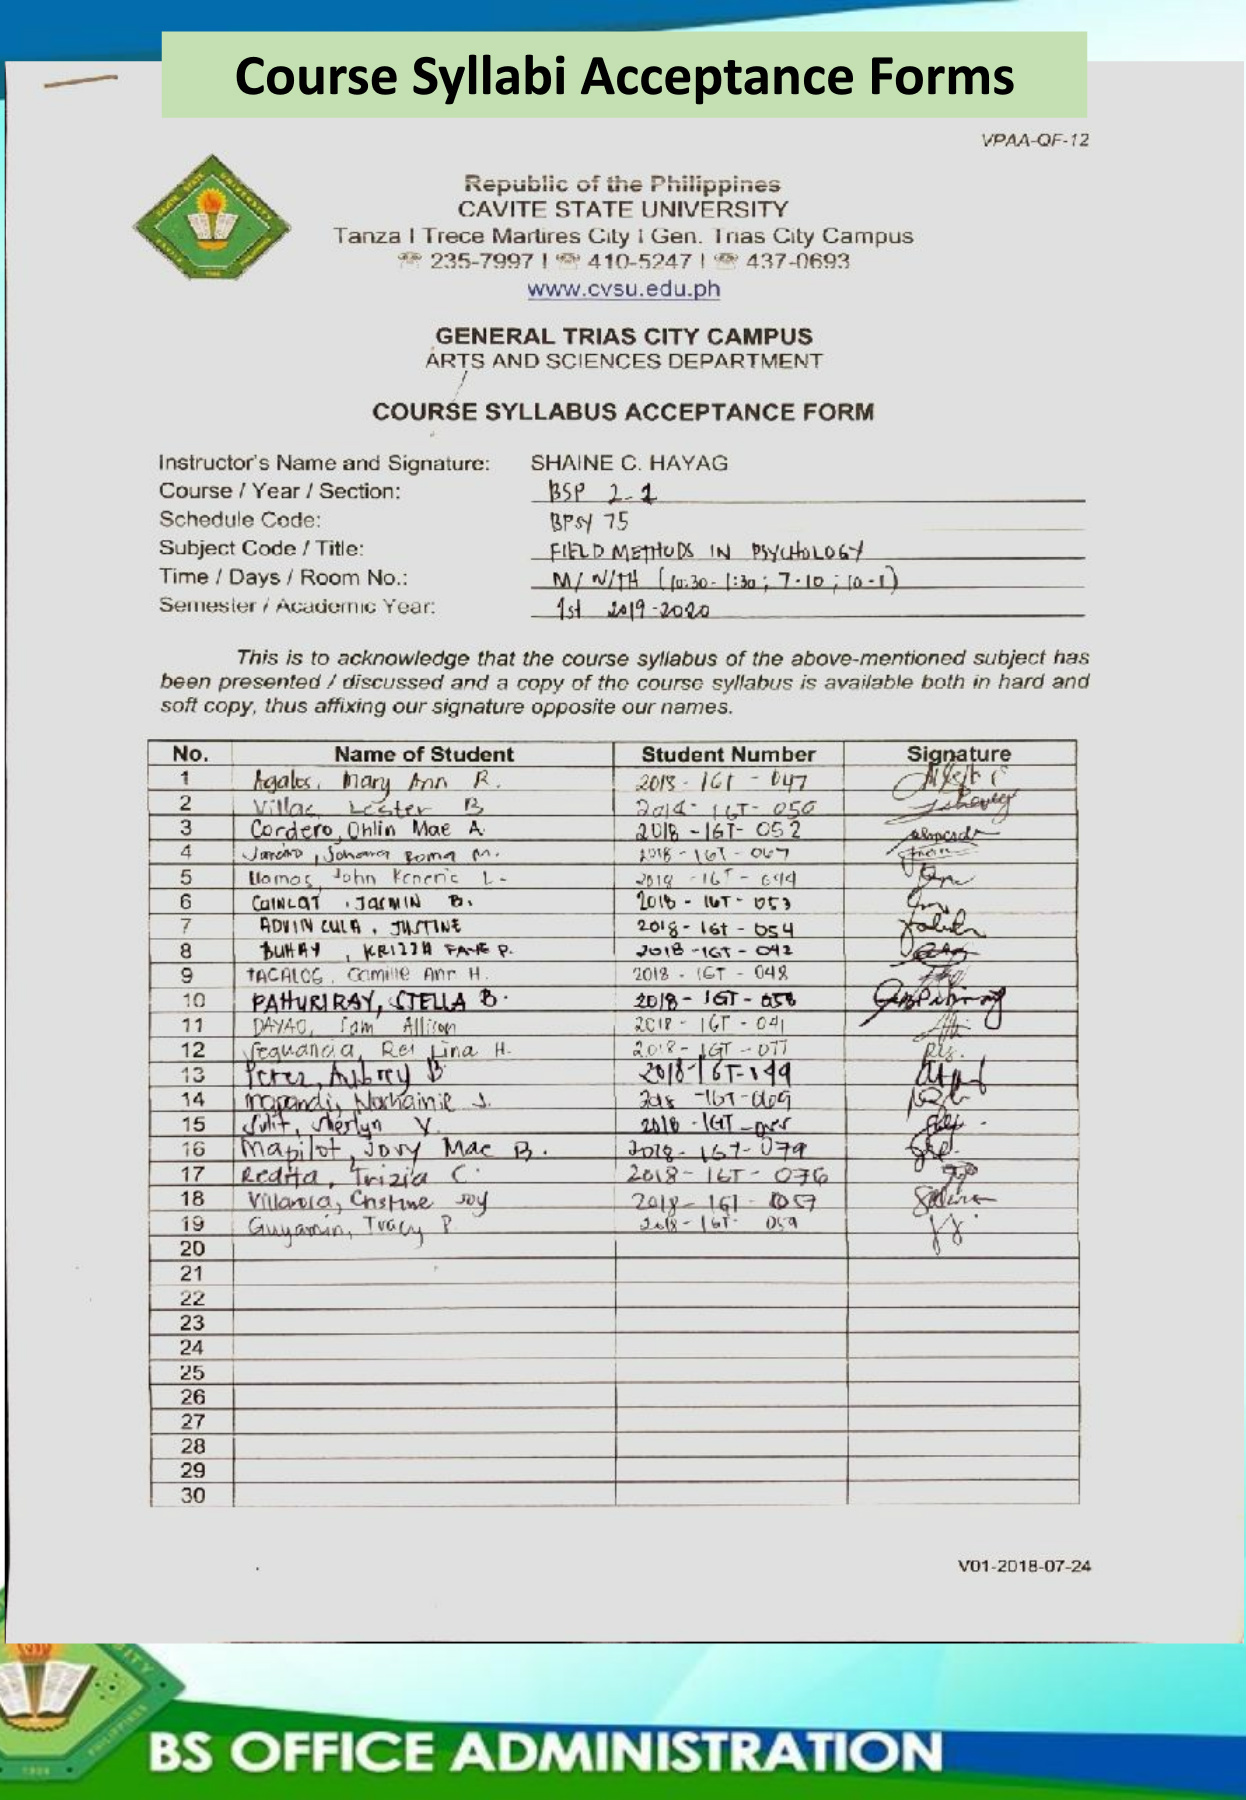 Course Syllabi Acceptance Forms
VPAA-QF-12
Republic of the Philippines
CAVITE STATE UNIVERSITY
Tanza I Trece Martires City I Gen. Trias City Campus
☏ 235-7997 I ☏ 410-5247 I ☏ 437-0693
www.cvsu.edu.ph
GENERAL TRIAS CITY CAMPUS
ARTS AND SCIENCES DEPARTMENT
COURSE SYLLABUS ACCEPTANCE FORM
Instructor's Name and Signature: SHAINE C. HAYAG
Course / Year / Section: BSP 2-1
Schedule Code: BPsy 75
Subject Code / Title: FIELD METHODS IN PSYCHOLOGY
Time / Days / Room No.: M/ W/TH (10:30-1:30; 7-10; 10-1)
Semester / Academic Year: 1st 2019-2020
This is to acknowledge that the course syllabus of the above-mentioned subject has
been presented / discussed and a copy of the course syllabus is available both in hard and
soft copy, thus affixing our signature opposite our names.
No. Name of Student Student Number Signature
1 Agales, Mary Ann R. 2018-IGT-047
2 Villas Lester B
3 Cordero, Ohlin Mae A. 2018-IGT-052
4 Roma M. 2018-IGT-067
5 Llamos, John Keneric L.
6 JASMIN B. 2018-IGT-053
7 ADVINCULA, JUSTINE 2018-IGT-054
8 BUHAY, KRIZZA FAYE P. 2018-IGT-042
9 TAGALOG, Camille Ann H. 2018-IGT-048
10 PAHURIRAY, STELLA B. 2018-IGT-058
11 DAYAO, Iam Allison 2018-IGT-041
12 Rei Lina H. 2018-IGT-077
13 Perez, Aubrey B
14 Norhainie J. 2018-IGT-069
15 Sulit, Sherlyn V.
16 Mapilot, Jovy Mae B. 2018-IGT-079
17 Redita, Trizia C. 2018-IGT-076
18 Joy 2018-IGT-057
19 Guyamin, Tracy P. 2018-IGT-059
20
21
22
23
24
25
26
27
28
29
30
V01-2018-07-24
BS OFFICE ADMINISTRATION